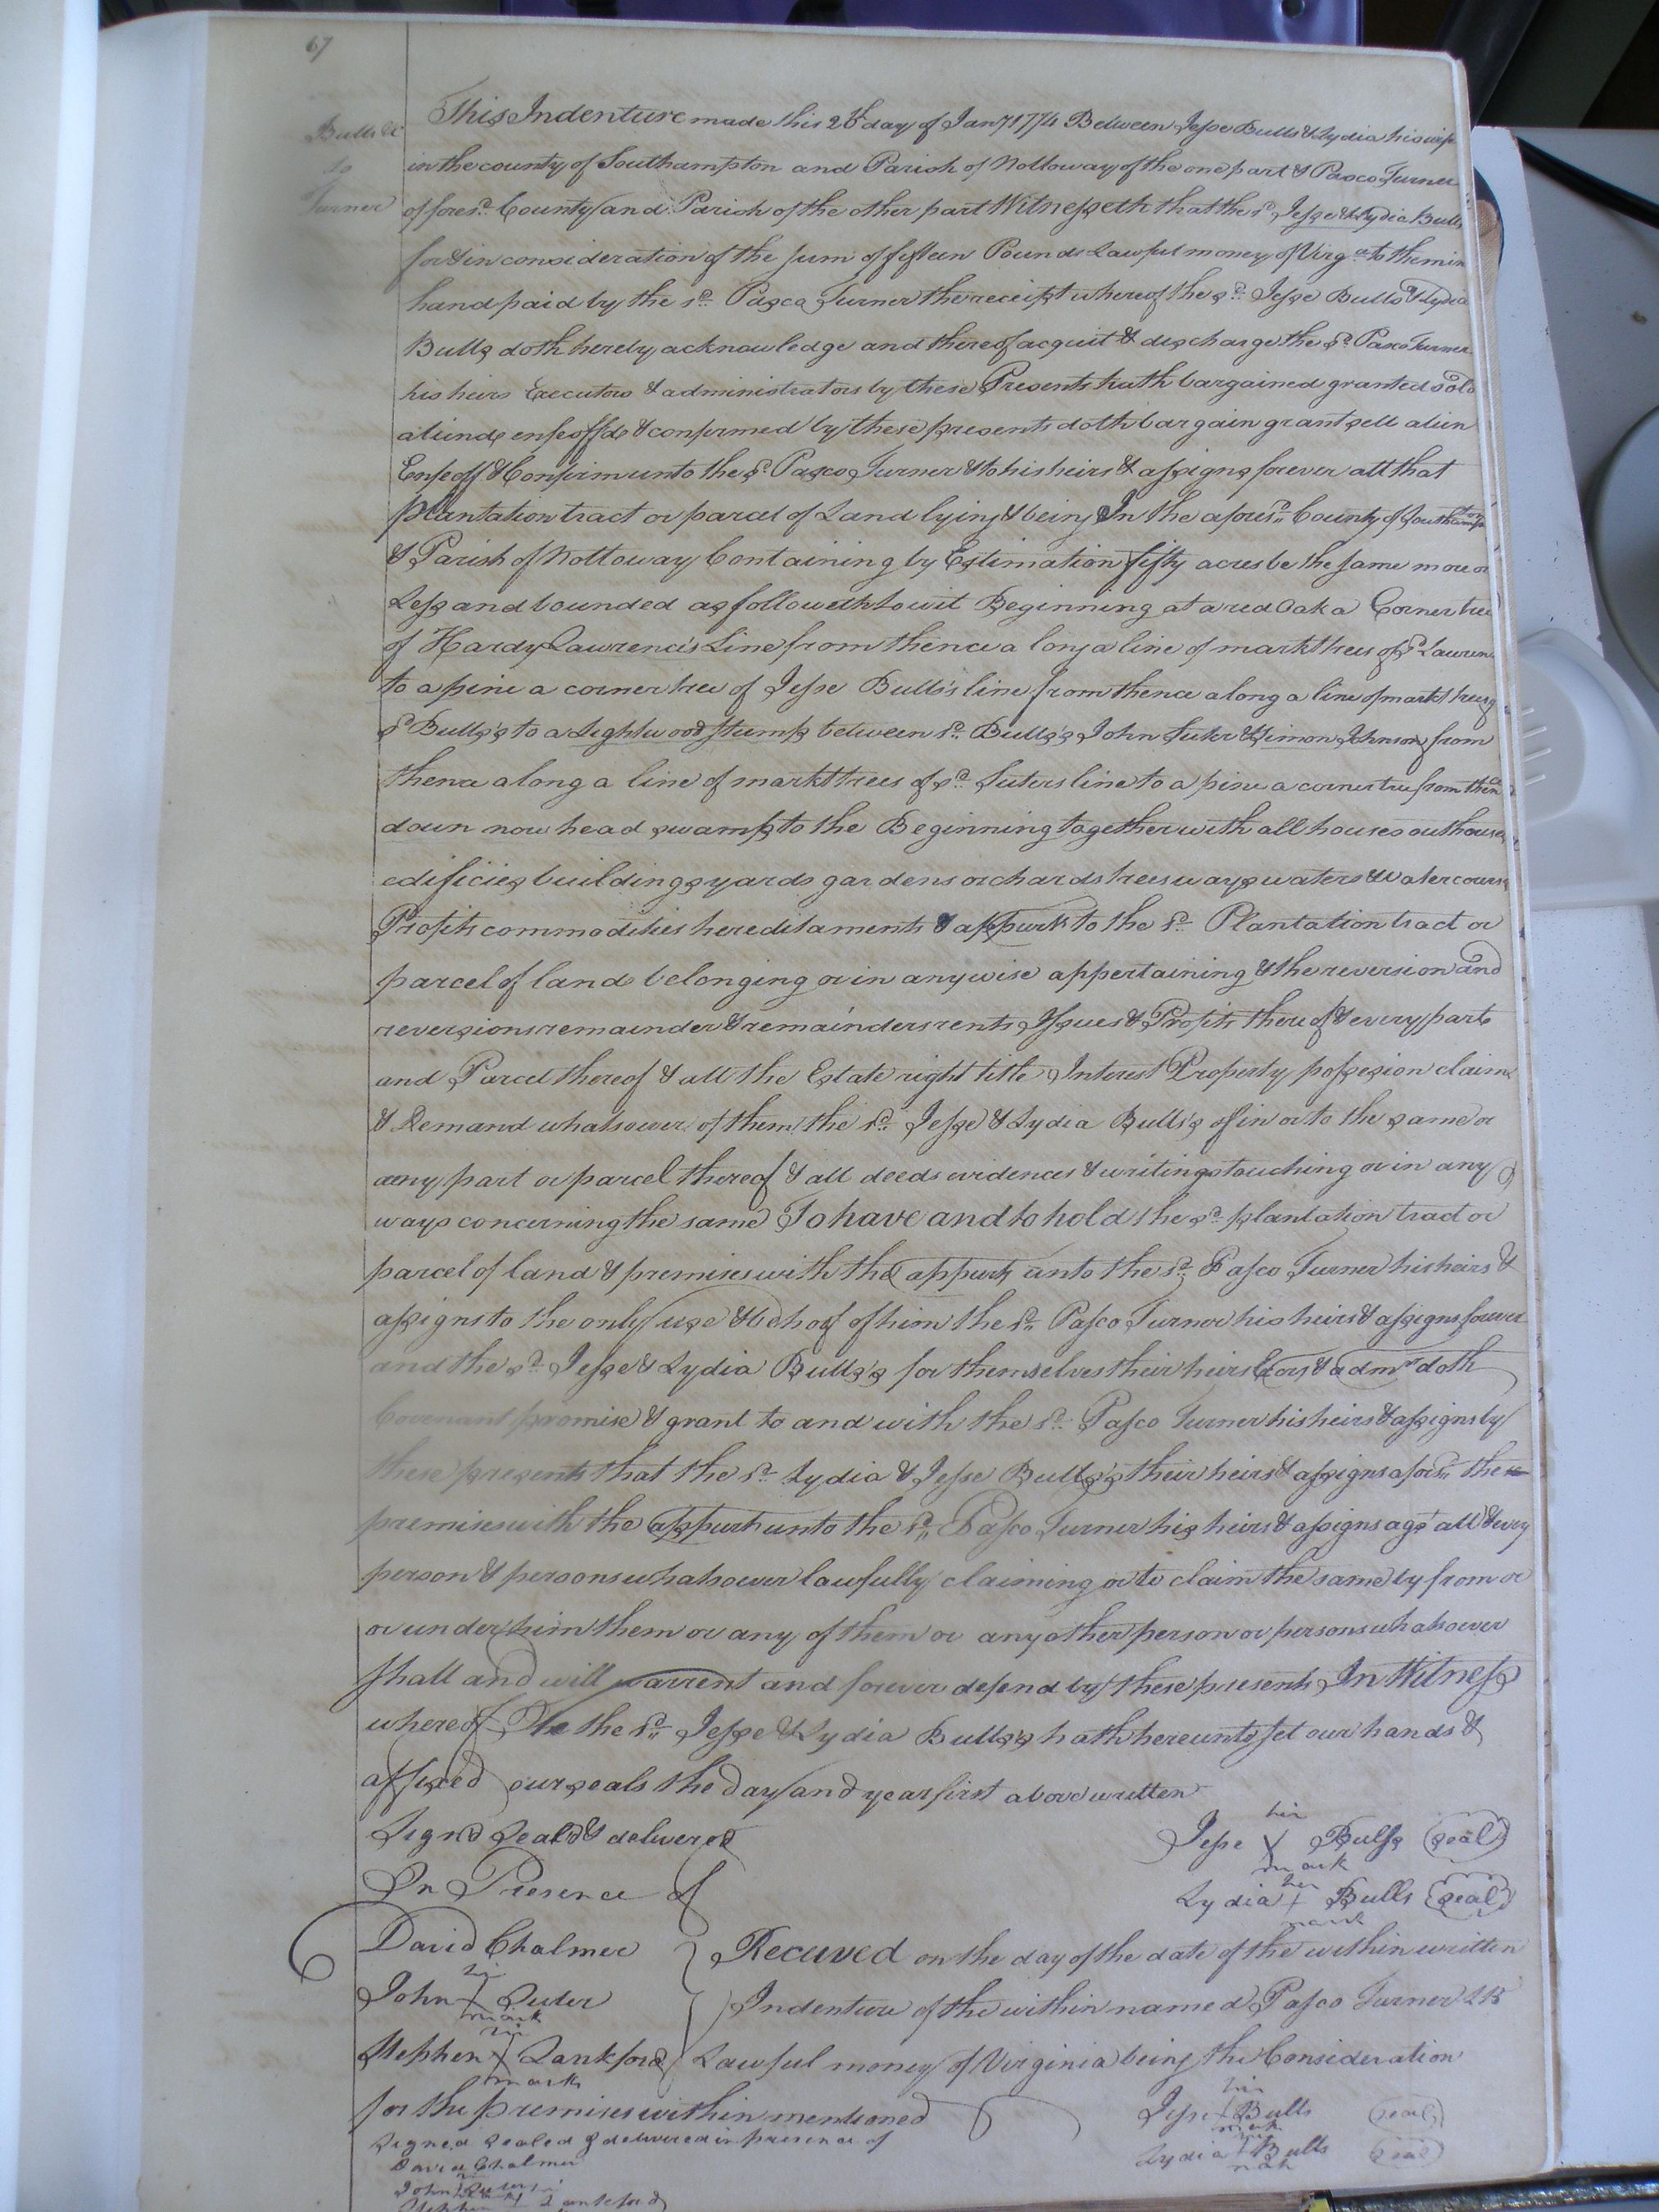 67
Bulls &c
to
Turner
This Indenture made this 26 day of Jany 1774 Between Jesse Bulls & Lydia his wife
in the county of Southampton and Parish of Nottoway of the one part & Pasco Turner
of foresd. County and Parish of the other part Witnesseth that the sd. Jesse & Lydia Bulls
for & in consideration of the sum of fifteen Pounds Lawful money of Virga. to them in
hand paid by the sd. Pasco Turner the receipt whereof the sd. Jesse Bulls & Lydia
Bulls doth hereby acknowledge and thereof acquit & discharge the sd. Pasco Turner
his heirs Executors & administrators by these Presents hath bargained granted sold
aliend enfeoffd & confirmed by these presents doth bargain grant sell alien
Enfeoff & Confirm unto the sd. Pasco Turner & to his heirs & assigns forever all that
Plantation tract or parcel of Land lying & being In the aforesd. County of Southampton
& Parish of Nottoway Containing by Estimation fifty acres be the same more or
Less and bounded as followeth to wit Beginning at a red Oak a Corner tree
of Hardy Lawrence's Line from thence a long a line of markt trees of sd. Lawrence
to a pine a corner tree of Jesse Bulls's line from thence along a line of markt trees of
sd. Bulls's to a Lightwood stump between sd. Bulls's John Suter & Simon Johnson from
thence along a line of markt trees of sd. Suters line to a pine a corner tree from thence
down now head swamp to the Beginning together with all houses outhouses
edificies buildings yards gardens orchards trees ways waters & Watercourses
Profits commodities hereditaments & appurts to the sd. Plantation tract or
parcel of land belonging or in anywise appertaining & the reversion and
reversions remainder & remainders rents Issues & Profits thereof & every part
and Parcel thereof & all the Estate right title Interest Property possesion claim
& Demand whatsoever of them the sd. Jesse & Lydia Bulls's of in or to the same or
any part or parcel thereof & all deeds evidences & writings touching or in any
ways concerning the same To have and to hold the sd. plantation tract or
parcel of land & premises with the appurts unto the sd. Pasco Turner his heirs &
assigns to the only use & behoof of him the sd. Pasco Turner his heirs & assigns forever
and the sd. Jesse & Lydia Bulls's for themselves their heirs Exors & admrs doth
Covenant promise & grant to and with the sd. Pasco Turner his heirs & assigns by
these presents that the sd. Lydia & Jesse Bulls's their heirs & assigns aforsd. the
premises with the appurts unto the sd. Pasco Turner his heirs & assigns agst all & every
person & persons whatsoever lawfully claiming or to claim the same by from or
or under him them or any of them or any other person or persons whatsoever
shall and will warrent and forever defend by these presents In Witness
whereof We the sd. Jesse & Lydia Bulls's hath hereunto set our hands &
affixed our seals the day and year first above written
Signd Seald & delivered
In Presence of
his
Jesse X Bulls (seal)
mark
her
Lydia + Bulls (seal)
mark
David Chalmer
his
John + Suter
mark
his
Stephen X Lankford
mark
Received on the day of the date of the within written
Indenture of the within named Pasco Turner £15
Lawful money of Virginia being the Consideration
for the premises within mentioned
his
Jesse + Bulls (seal)
mark
her
Lydia + Bulls (seal)
mark
Signed Sealed & delivered in presence of
David Chalmer
John + Suter
Stephen + Lankford